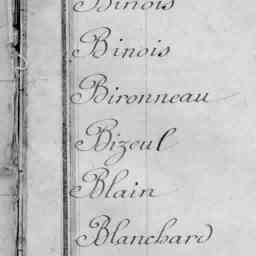 Binois
Binois
Bironneau
Bizeul
Blain
Blanchard